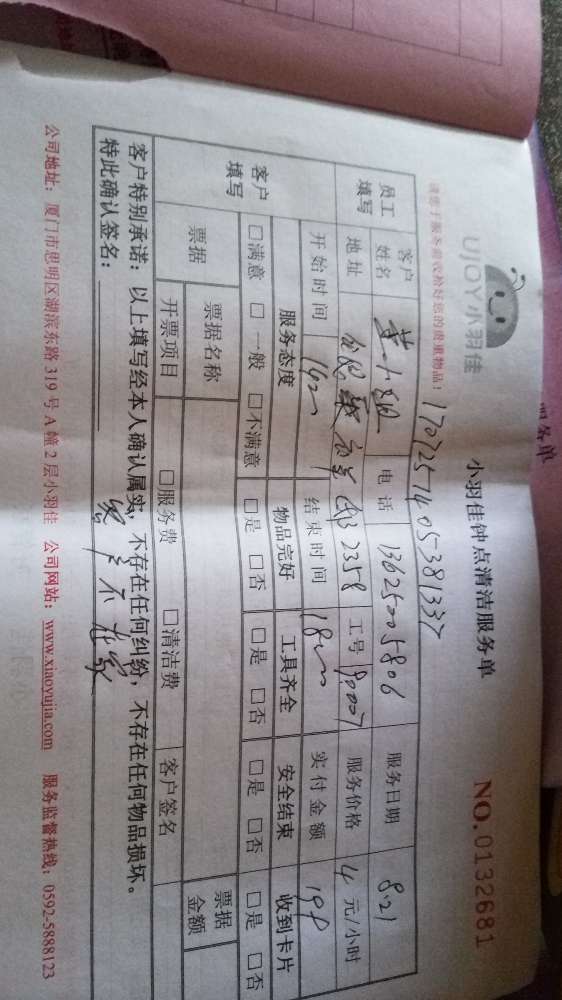 服务单
UJOY小羽佳
小羽佳钟点清洁服务单
NO.0132681
请您于服务前收检好您的贵重物品！
17072571405381337
员工填写 客户姓名 电话 13625005806 服务日期 8.21
地址 2358 工号 90007 服务价格 4 元/小时
开始时间 1400 结束时间 1800 实付金额
客户填写 服务态度 物品完好 工具齐全 安全结束 收到卡片
□满意 □一般 □不满意 □是 □否 □是 □否 □是 □否 □是 □否
票据 票据名称 票据金额
开票项目 □服务费 □清洁费 客户签名
客户特别承诺：以上填写经本人确认属实，不存在任何纠纷，不存在任何物品损坏。
特此确认签名： 客户不在家
公司地址：厦门市思明区湖滨东路 319 号 A 幢 2 层小羽佳 公司网站：www.xiaoyujia.com 服务监督热线：0592-5888123